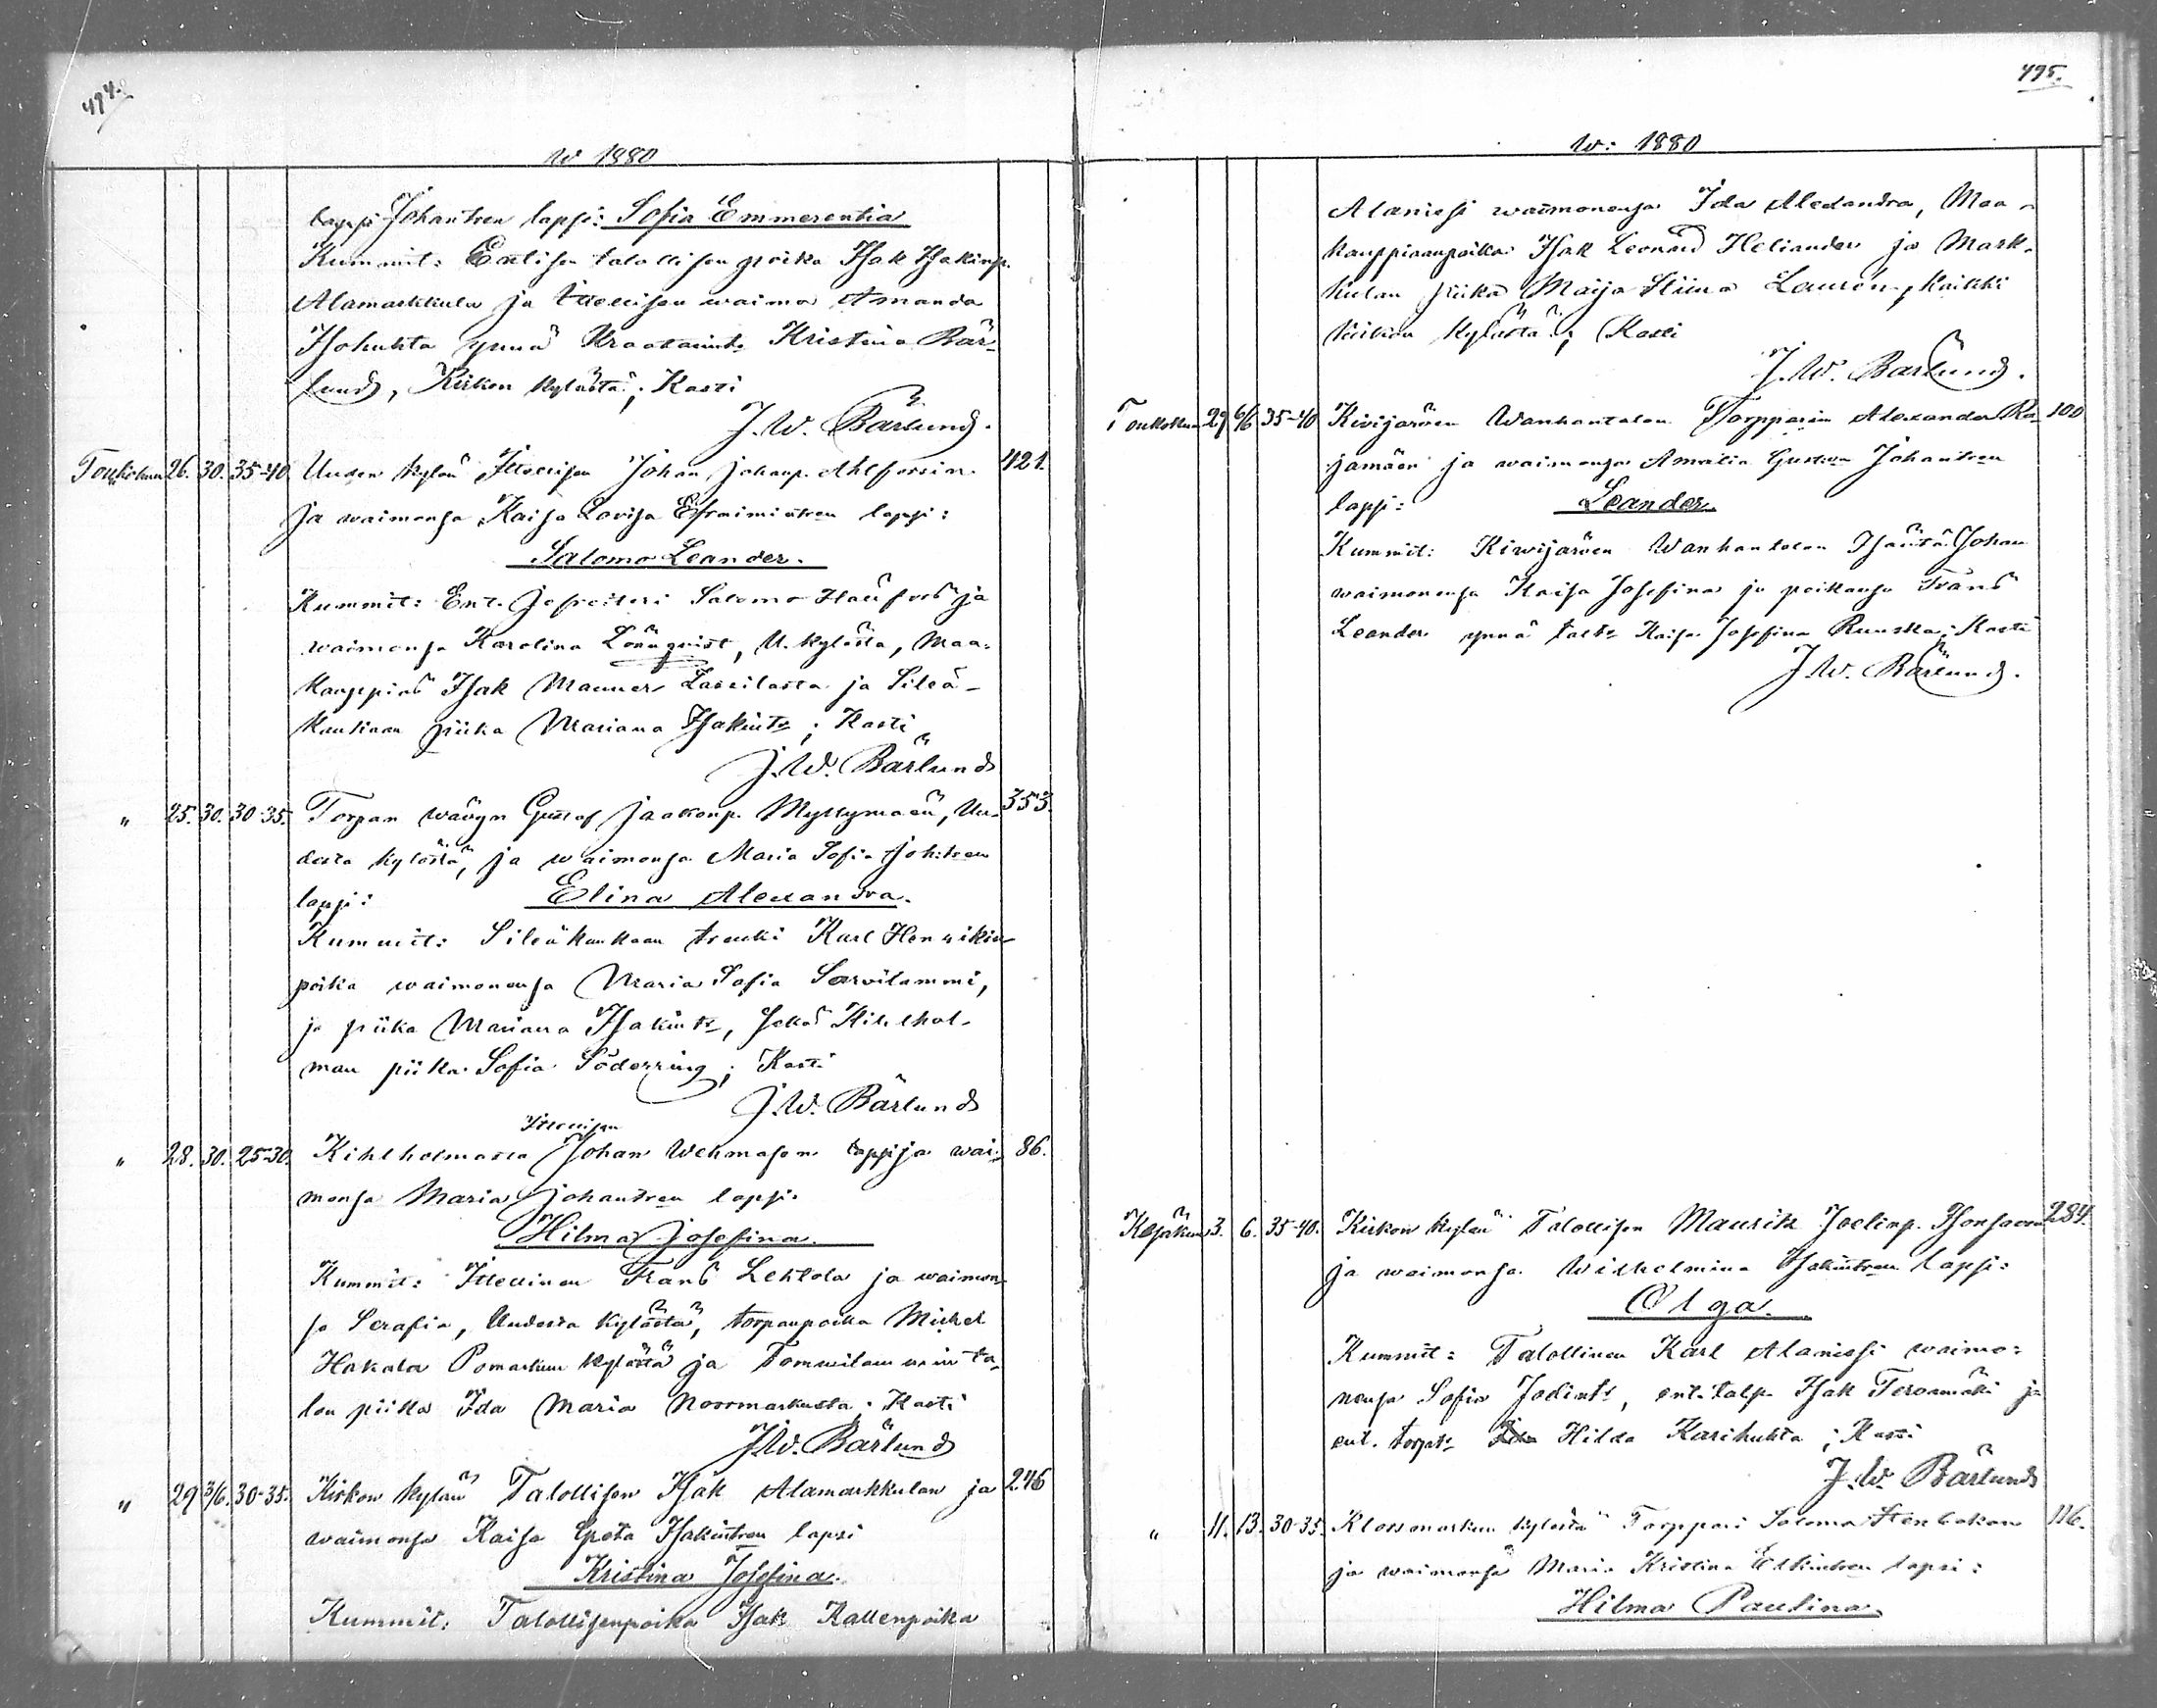 494.
w 1880
lapsi Johantren lapsi: Sofia Emmerentia
Kummit: Entisen talollisen poika Isak Isakinp.
Alamarkkula ja Itsellisen waimo Amanda
Isohuhta ynnä Kristina Bär-
lund, Kirkon kylästä; Kasti
J. W. Bärlund.
Toukokuun 26. 30. 35-40 Uuden kylän Itsellisen Johan Johanp. Ahlforsin 421.
ja waimonsa Kaisa Lovisa Efraimintren lapsi:
Salomo Leander.
Kummit: Ent. Salomo ja
waimonsa Karolina Lönnqvist, U. kylästä, Maa-
kauppias Isak Manner Lassilasta ja Sileä-
kankaan piika Mariana Isakintr; Kasti
J. W. Bärlund
" 25. 30. 30-35. Torpan wäwyn Gustaf Jaakonp. Myllymäen, Uu- 353.
desta kylästä, ja waimonsa Maria Sofia Joh:tren
lapsi: Elina Alexandra.
Kummit: Sileäkankaan trenki Karl Henrikin-
poika waimonensa Maria Sofia Sarvilammi,
ja piika Mariana Isakintr, sekä Kihlhol-
man piika Sofia Söderring; Kasti
J. W. Bärlund
Itsellisen
" 28. 30. 25-30. Kihlholmasta Johan Wehmasen lapsi ja wai- 86.
monsa Maria Johantren lapsi.
Hilma Josefina.
Kummit: Itsellinen Frans Lehtola ja waimon-
sa Serafia, Uudesta kylästä, torpanpoika Michel
Hakala Pomarkun kylästä ja Tommilan ta-
lon piika Ida Maria Norrmarkusta; Kasti
J. W. Bärlund
" 29 3/6. 30-35. Kirkon kylän Talollisen Isak Alamarkkulan ja 246
waimonsa Kaisa Greta Isakintren lapsi
Kristina Josefina.
Kummit: Talollisenpoika Isak Kallenpoika
495.
w: 1880
Alaniesi waimonensa Ida Alexandra, Maa-
kauppiaanpoika Isak Leonard Heliander ja Mark-
kulan piika Maija Stiina Laurén, kaikki
kirkon kylästä; Kasti
J. W. Bärlund.
Toukokuun 29 6/6 35-40 Kivijärven Wanhantalon Torpparin Alexander Ra- 100
jamäen ja waimonsa Amalia Gustava Johantren
lapsi: Leander.
Kummit: Kiwijärven Wanhantalon Isäntä Johan
waimonensa Kaisa Josefina ja poikansa Frans
Leander ynnä taltr Kaisa Josefina Ruuska; Kasti
J. W. Bärlund.
Kesäkuun 3. 6. 35-40. Kirkon kylän Talollisen Maurits Joelinp. Isonsaaren 284.
ja waimonsa Wilhelmina Isakintren lapsi:
Olga.
Kummit: Talollinen Karl Alaniesi waimo-
nensa Sofia Joelintr, ent. talp. Isak Tervamäki ja
ent. torptr Ida Hilda Karihuhta; Kasti
J. W. Bärlund
" 11. 13. 30-35 Klåsmarkun kylästä Torppari Salomo Stenbakan 116.
ja waimonsa Maria Kristina Erkintren lapsi:
Hilma Paulina.